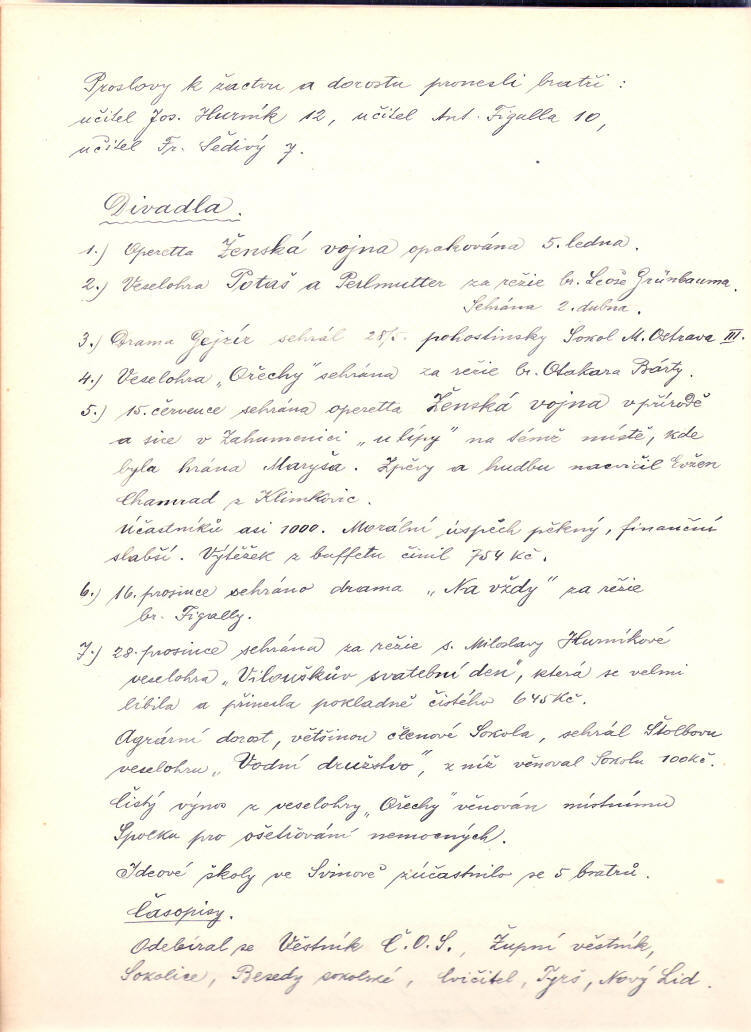 Proslovy k žactvu a dorostu pronesli bratři :
učitel Jos. Hurník 12, učitel Ant. Figalla 10,
učitel Fr. Šedivý 7.
Divadla.
1.) Operetta Ženská vojna opakována 5. ledna.
2.) Veselohra Potaš a Perlmutter za režie br. Leoše Grünbauma.
Sehrána 2. dubna.
3.) Drama Gejzír sehrál 28/5. pohostinsky Sokol M. Ostrava III.
4.) Veselohra „Ořechy" sehrána za režie br. Otakara Bárty.
5.) 15. července sehrána operetta Ženská vojna v přírodě
a sice v Zahumenici „u lípy" na témž místě, kde
byla hrána Maryša. Zpěvy a hudbu nacvičil Evžen
Chamrad z Klimkovic.
Účastníků asi 1000. Morální úspěch pěkný, finanční
slabší. Výtěžek z buffetu činil 754 Kč.
6.) 16. prosince sehráno drama „Na vždy" za režie
br. Figally.
7.) 28. prosince sehrána za režie s. Miloslavy Hurníkové
veselohra „Vilouškův svatební den", která se velmi
líbila a přinesla pokladně čistého 645 Kč.
Agrární dorost, většinou členové Sokola, sehrál Štolbovu
veselohru „Vodní družstvo", z níž věnoval Sokolu 100 Kč.
Čistý výnos z veselohry „Ořechy" věnován místnímu
Spolku pro ošetřování nemocných.
Ideové školy ve Svinově zúčastnilo se 5 bratrů.
Časopisy.
Odebíral se Věstník Č.O.S., Župní věstník,
Sokolice, Besedy sokolské, Cvičitel, Tyrš, Nový Lid.